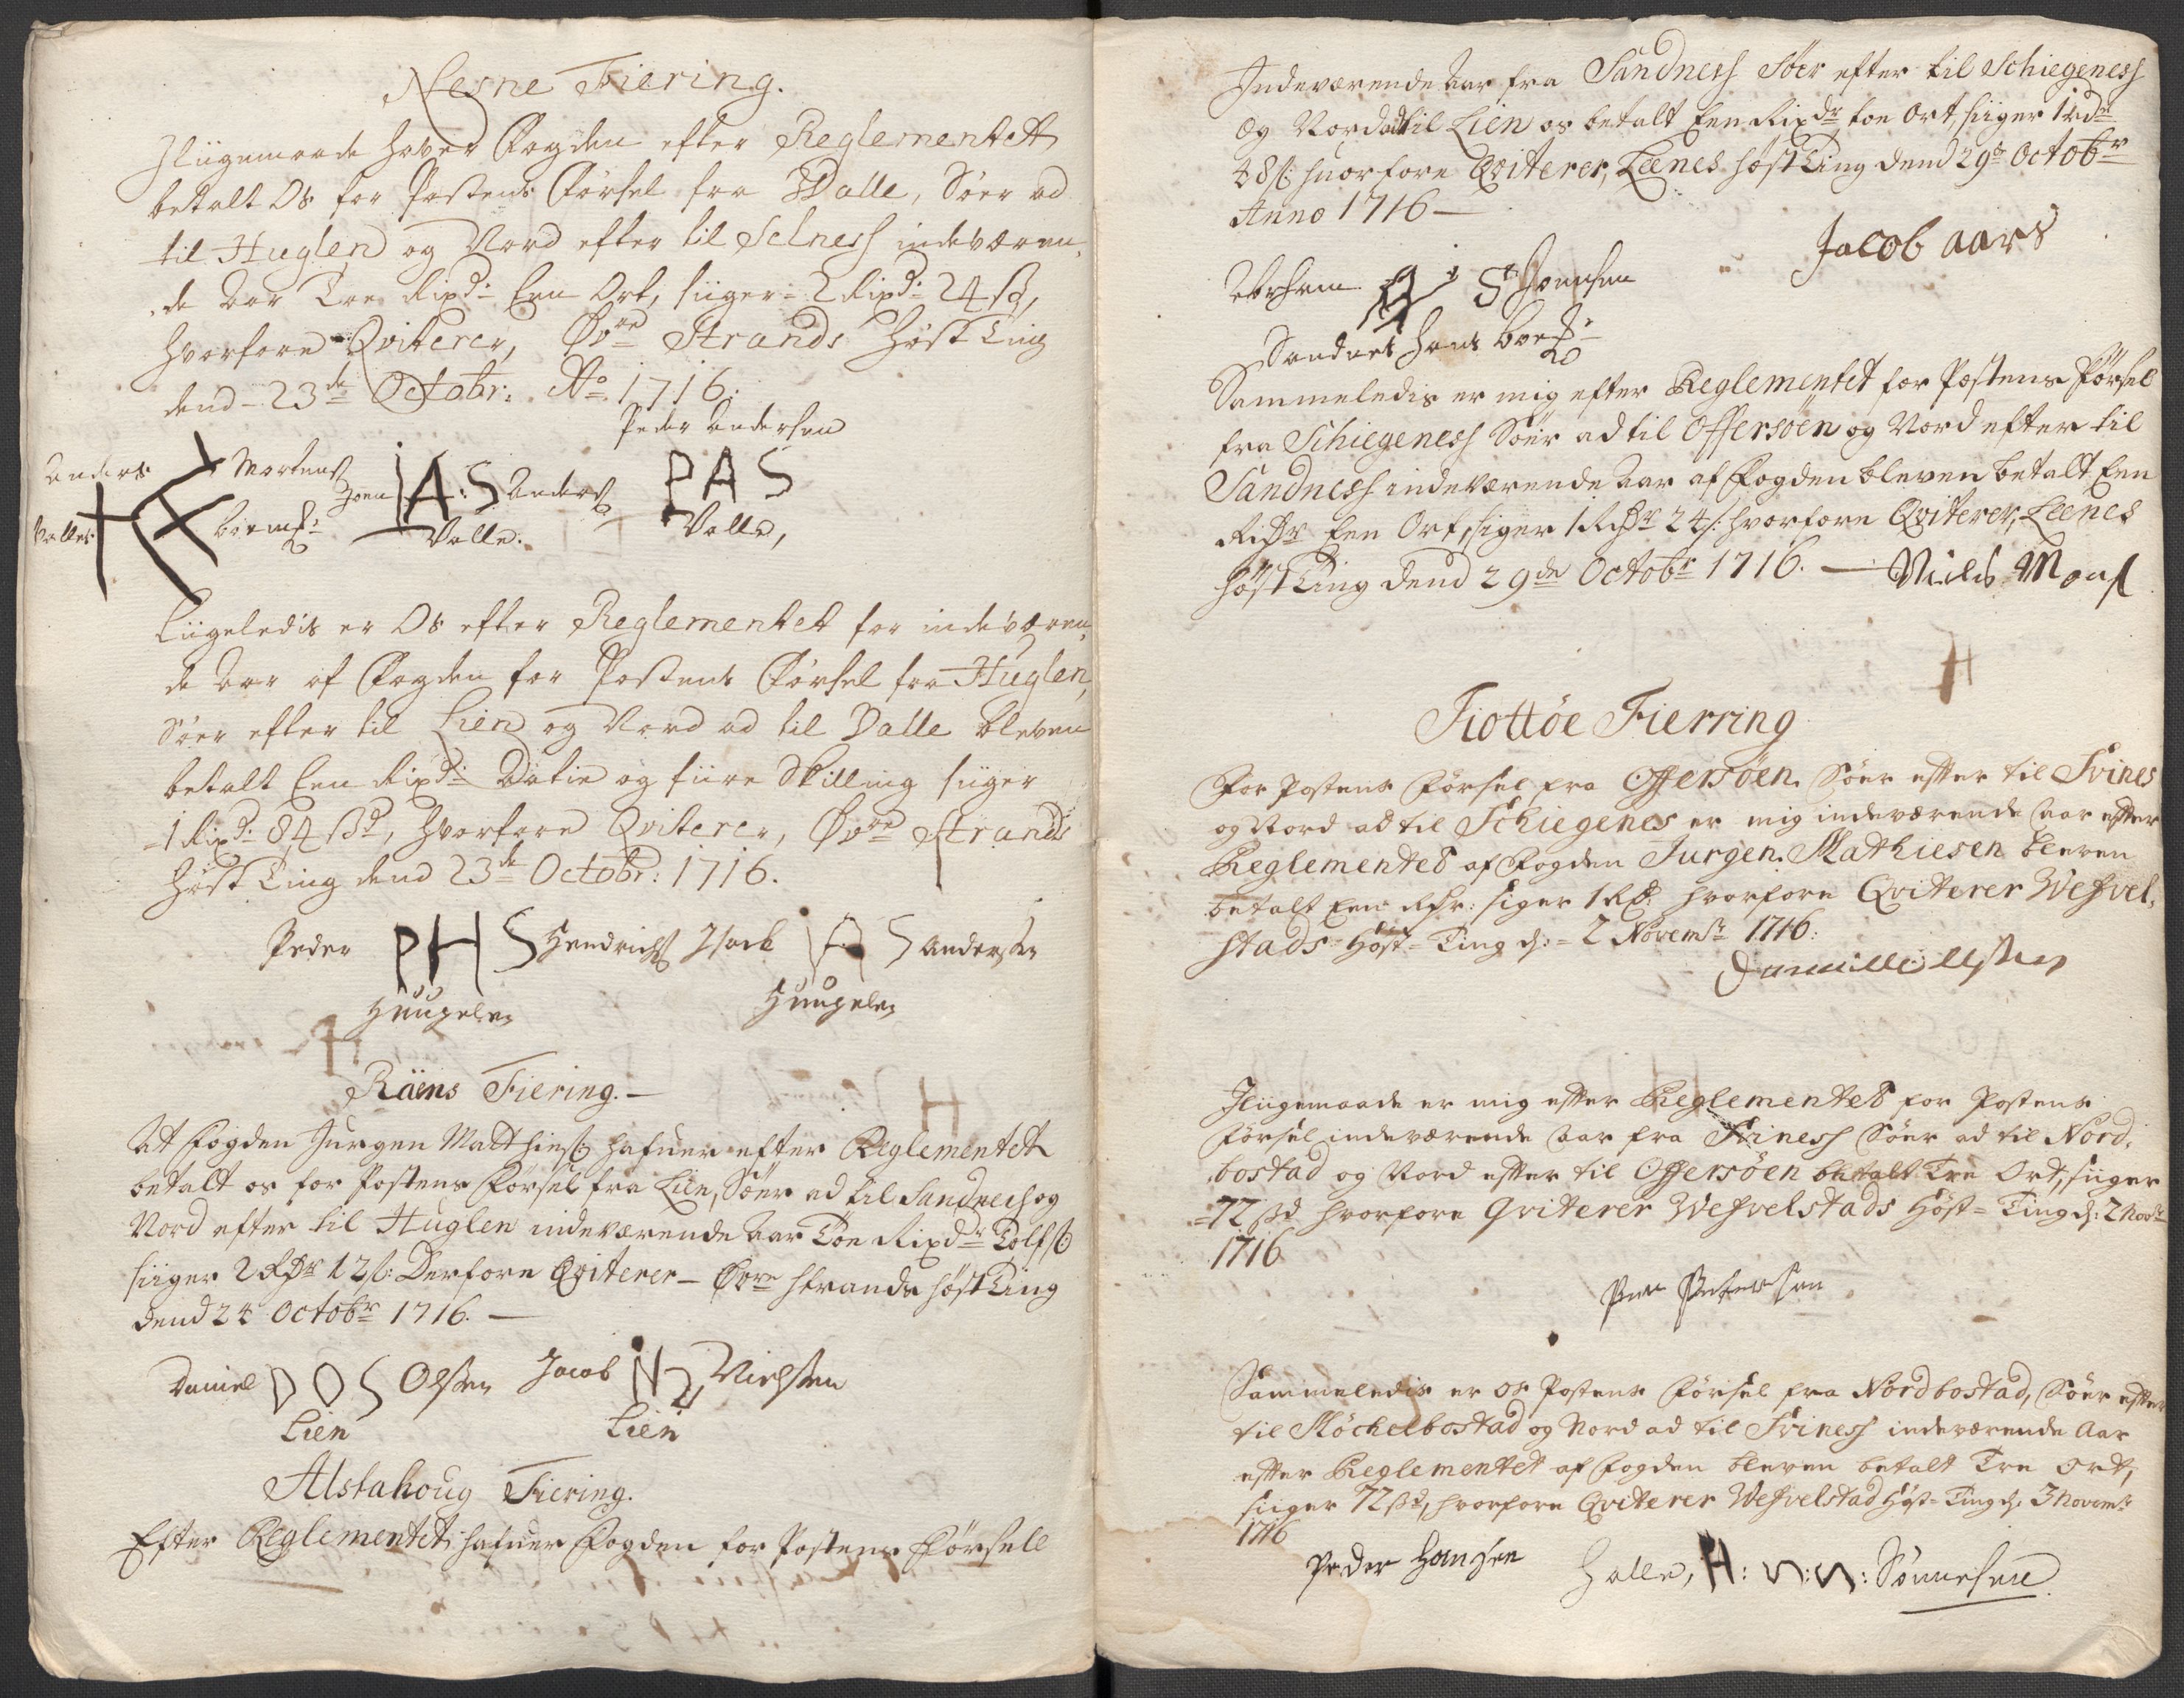 Nesne Fiering.
Jliigemaade haver Fogden efter Reglementet
betalt Os for Postens Förhsel fra Valle, Söer ad
til Huglen og Nord efter til Selness indeværen,
de Aar Toe Rixdr Een Ort, siiger = 2 Rixdr 24 ß,
hvorfore Qviterer, Øvre Strands Höst Ting
dend 23de Octobr: Ao 1716.
Peder Andersen
Anders Mortens Joen IA:S Anders PAS
Valle Valle. Valle,
Liigeledis er Os efter Reglementet for indeværen,
de Aar af Fogden for Postens Förhsel fra Huglen,
Söer efter til Lien og Nord ad til Valle bleven
betalt Een Rixdr Ottetie og fiire Skilling siiger
1 Rixdr 84 ßd, hvorfore Qviterer, Øvre Strands
Höst Ting dend 23de Octobr: 1716.
Peder PHS Hendrichs Isach IAS Andersen
Huugelen Huugelen
Räens Fiering. —
At Fogden Jurgen Matthies hafuer efter Reglementet
betalt os for Postens Forsel fra Lien, Söer ad til Sandnes og
Nord efter til Huglen indeværende Aar Toe Rixdr Tolf ß
siiger 2 Rdr 12 ß: Derfore Qviterer — Øvre Strands höst Ting
Dend 24 Octobr 1716. —
Daniel DOS Olsen Jacob IN Nielsen
Lien Lien
Alstahoug Fiering.
Efter Reglementet hafuer Fogden for Postens Försell
Indeværende Aar fra Sandness Söer efter til Schiegeness
og Nord ad til Lien os betalt Een Rixdr toe Ort, siiger 1 rdr
48 ß: huorfore Qviterer, Leenes höst Ting dend 29de Octobr
Anno 1716 —
Jacob Aars
Joensen
Sandnes
Sammeledis er mig efter Reglementet for Postens Förhsel
fra Schiegeness Söer ad til Offersöen og Nord efter til
Sandness indeværende Aar af Fogden bleven betalt Een
Rdr Een Ort, siger 1 Rdr 24 ß: hvorfore Qviterer, Leenes
höst Ting dend 29de Octobr 1716. — Niels Mons
Tiottöe Fierring
For Postens Förhsel fra Offersöen Söer efter til Svines
og Nord ad til Schiegenes er mig indeværende Aar efter
Reglementet af Fogden Jurgen Mathiesen bleven
betalt Een Rdr: siger 1 Rd: hvorfore Qviterer Wefvel,
stads = Höst = Ting d: = 2 Novembr 1716:
Jliigemaade er mig efter Reglementet for Postens
Förhsel indeværende Aar fra Sviness Söer ad til Nord,
bostad og Nord efter til Offersöen betalt Tre Ort, siiger
= 72 ßd hvorfore Qviterer Wefvelstads Höst = Ting d: 2 Novbr
1716
Petersen
Sammeledis er os Postens Förhsel fra Nordbostad, Söer efter
til Möchelbostad og Nord ad til Sviness indeværende Aar
efter Reglementet af Fogden bleven betalt Tre Ort,
siiger 72 ßd, hvorfore Qviterer Wefvelstad Höst = Ting d: 3 Novembr
1716
Peder Hansen Halle, H: S:S: Sönnesen